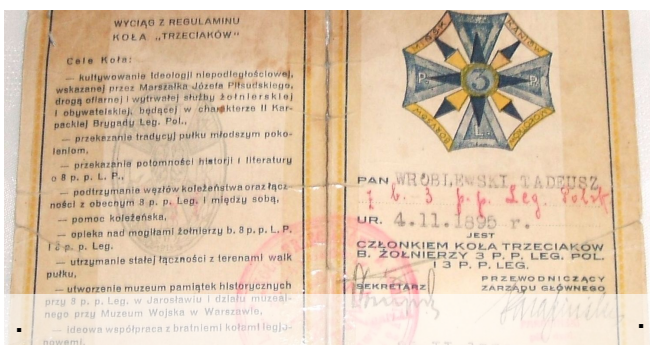 WYCIĄG Z REGULAMINU
KOŁA „TRZECIAKÓW”
Cele Koła:
— kultywowanie ideologji niepodległościowej,
wskazanej przez Marszałka Józefa Piłsudskiego,
drogą ofiarnej i wytrwałej służby żołnierskiej
i obywatelskiej, będącej w charakterze II Kar-
packiej Brygady Leg. Pol.,
— przekazanie tradycyj pułku młodszym poko-
leniom,
— przekazanie potomności historji i literatury
o 3 p. p. L. P.,
— podtrzymanie węzłów koleżeństwa oraz łącz-
ności z obecnym 3 p. p. Leg. i między sobą,
— pomoc koleżeńska,
— opieka nad mogiłami żołnierzy b. 3 p. p. L. P.
i 3 p. p. Leg.
— utrzymanie stałej łączności z terenami walk
pułku,
— utworzenie muzeum pamiątek historycznych
przy 3 p. p. Leg. w Jarosławiu i działu muzeal-
nego przy Muzeum Wojska w Warszawie,
— ideowa współpraca z bratniemi kołami legjo-
nowemi.
KANIÓW
3
P. P.
L.
PAN WRÓBLEWSKI TADEUSZ
z b. 3 p. p. Leg. Polsk
UR. 4.11.1895 r.
JEST
CZŁONKIEM KOŁA TRZECIAKÓW
B. ŻOŁNIERZY 3 P. P. LEG. POL.
I 3 P. P. LEG.
SEKRETARZ
PRZEWODNICZĄCY
ZARZĄDU GŁÓWNEGO